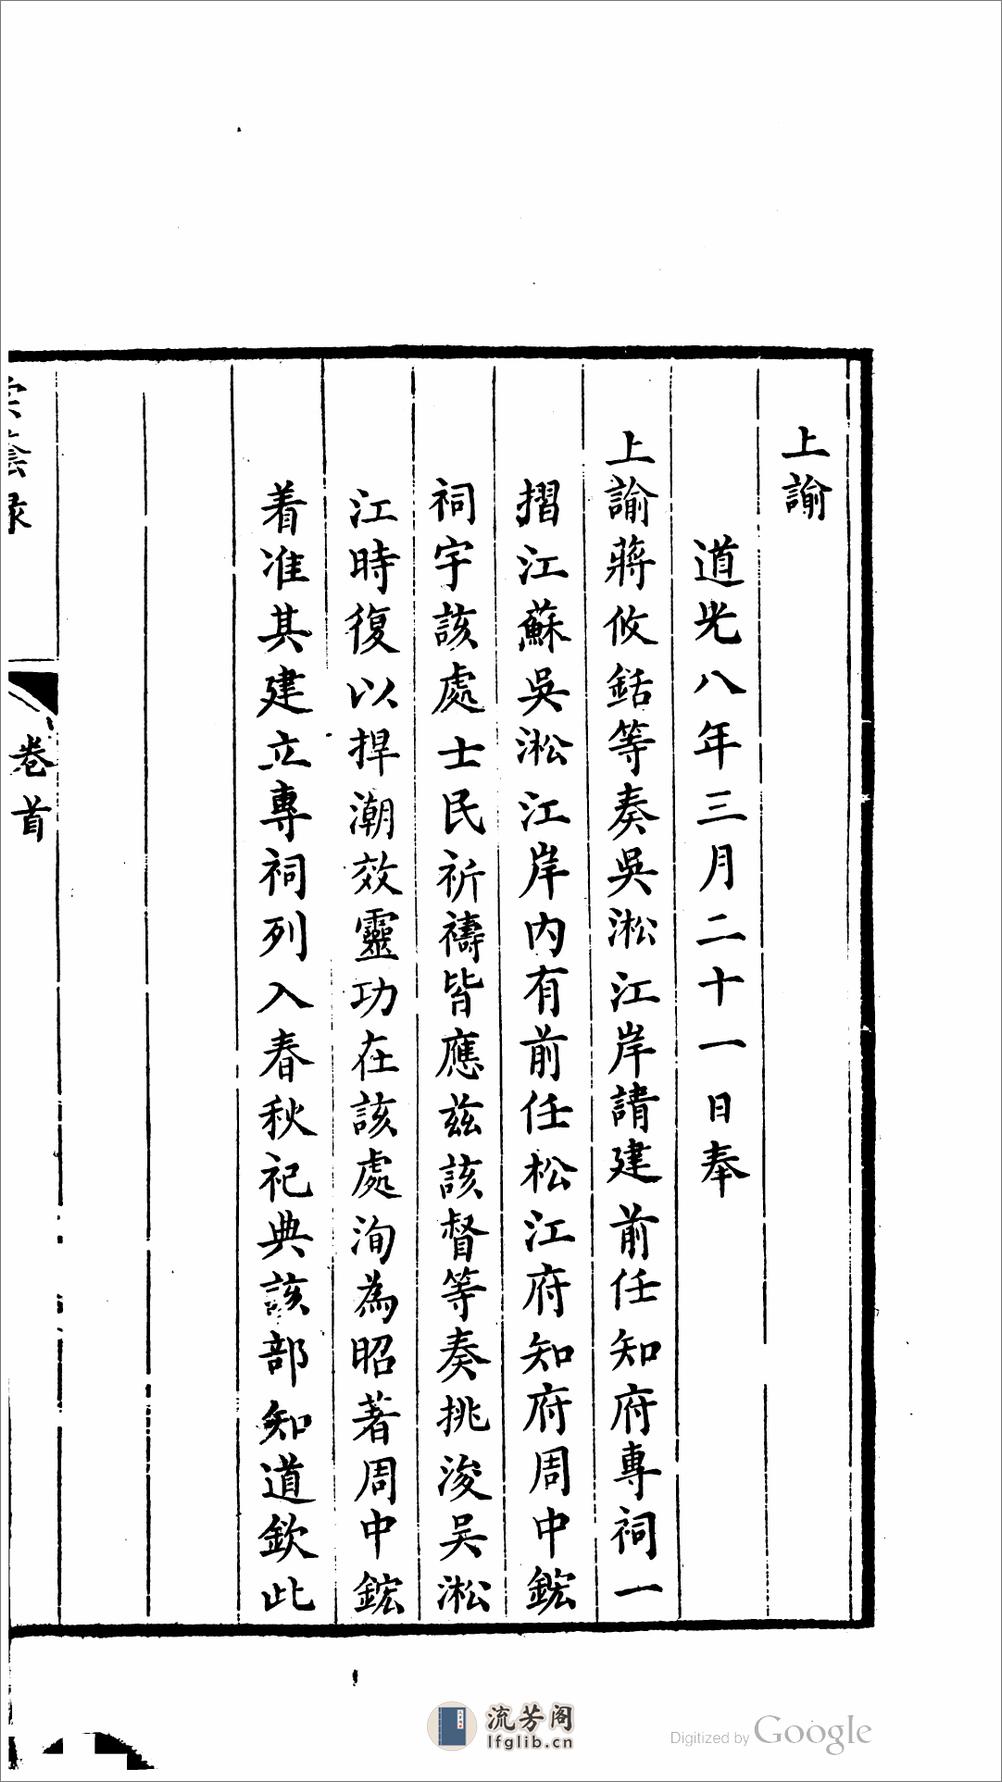 上諭
道光八年三月二十一日奉
上諭蔣攸銛等奏吳淞江岸請建前任知府專祠一
摺江蘇吳淞江岸內有前任松江府知府周中鋐
祠宇該處士民祈禱皆應茲該督等奏挑浚吳淞
江時復以捍潮效靈功在該處洵為昭著周中鋐
着准其建立專祠列入春秋祀典該部知道欽此
卷首
流芳阁
lfglib.cn
Digitized by Google